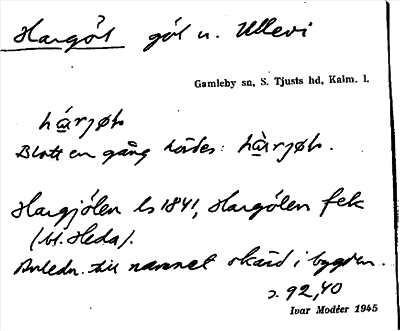 Hargöl göl n. Ullevi
Gamleby sn, S. Tjusts hd, Kalm. l.
hárjøḷ
Blott en gång hördes: hàrjøḷ.
Hargjölen ls 1841, Hargölen fek
(bl. Heda).
Anledn. till namnet okänd i bygden.
s. 92, 40
Ivar Modéer 1945